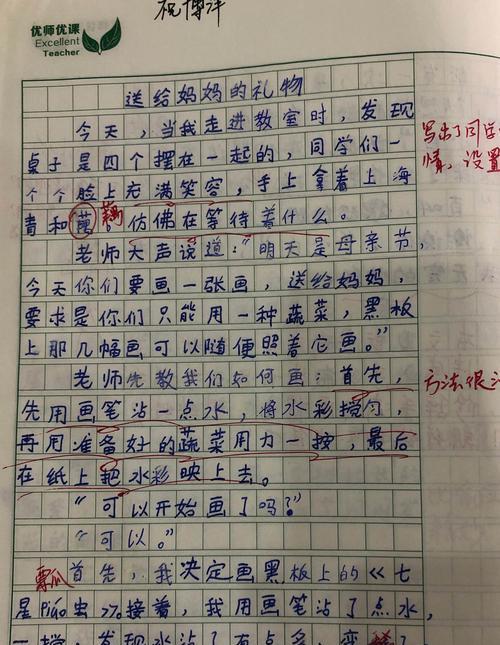 祝博洋
优师优课
Excellent
Teacher
送给妈妈的礼物
今天，当我走进教室时，发现
桌子是四个摆在一起的，同学们一
个个脸上充满笑容，手上拿着上海
青和藕。仿佛在等待着什么。
写出了同学
情，设置
老师大声说道：“明天是母亲节，
今天你们要画一张画，送给妈妈，
要求是你们只能用一种蔬菜，黑板
上那几幅画可以随便照着它画。”
老师先教我们如何画：首先，
方法很
先用画笔沾一点水，将水彩搅匀，
再用准备好的蔬菜用力一按，最后
在纸上把水彩映上去。
“可以开始画了吗？”
“可以。”
瓢
首先，我决定画黑板上的《七
星piáo虫》。接着，我用画笔沾了点水，
一搅，发现水沾了有点多，变